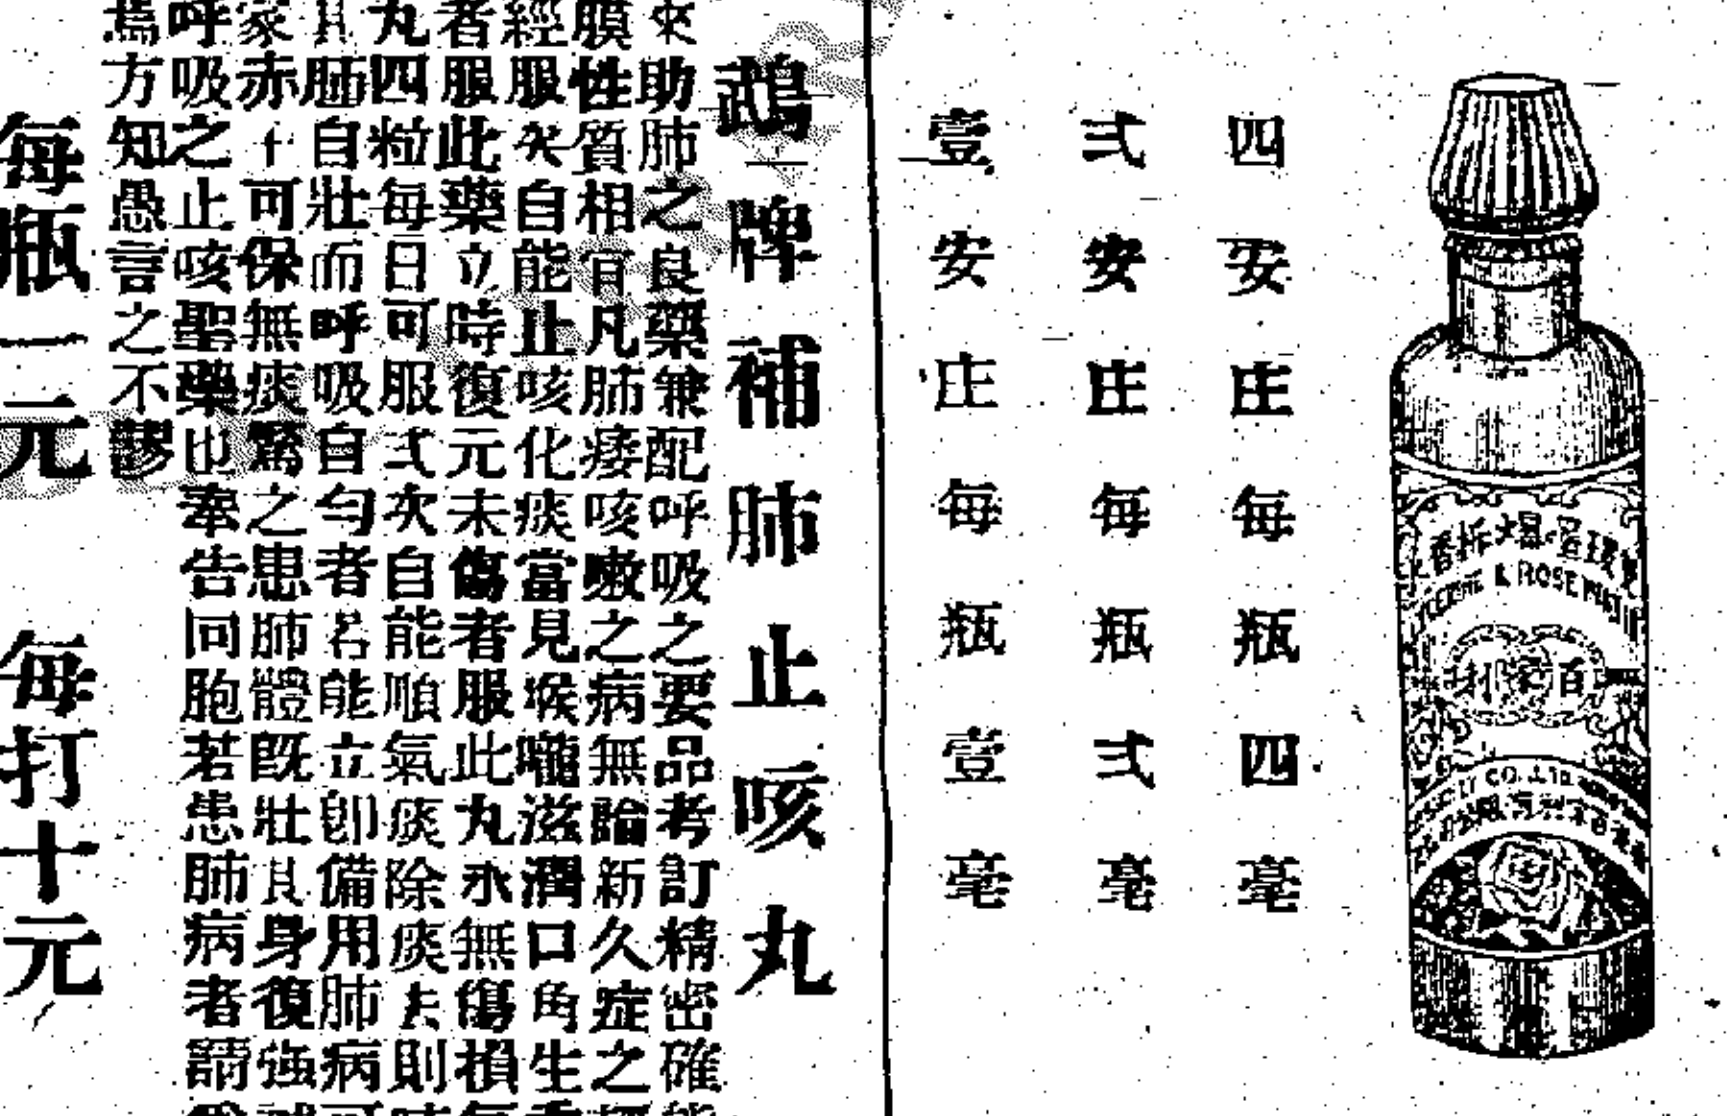 四安庄每瓶四毫
弍安庄每瓶弍毫
壹安庄每瓶壹毫
百家利
CO. LTD.
鵡牌補肺止咳丸
助肺之良藥兼配呼吸之要品考訂精密確
膜性質相宜凡肺痿咳嗽之病無論新久症之
經服矢自能止咳化痰當見喉嚨滋潤口角生
者服此藥立時復元未傷者服此丸永無傷損
丸四粒每日可服弍次自能順氣痰除痰夫則
其肺自壯而呼吸自勻者若能立卽備用肺病
家赤十可保無痰驚之患肺體旣壯其身復強
呼吸之止咳聖藥也奉告同胞若患肺病者請
爲方知愚言之不謬
每瓶一元 每打十元